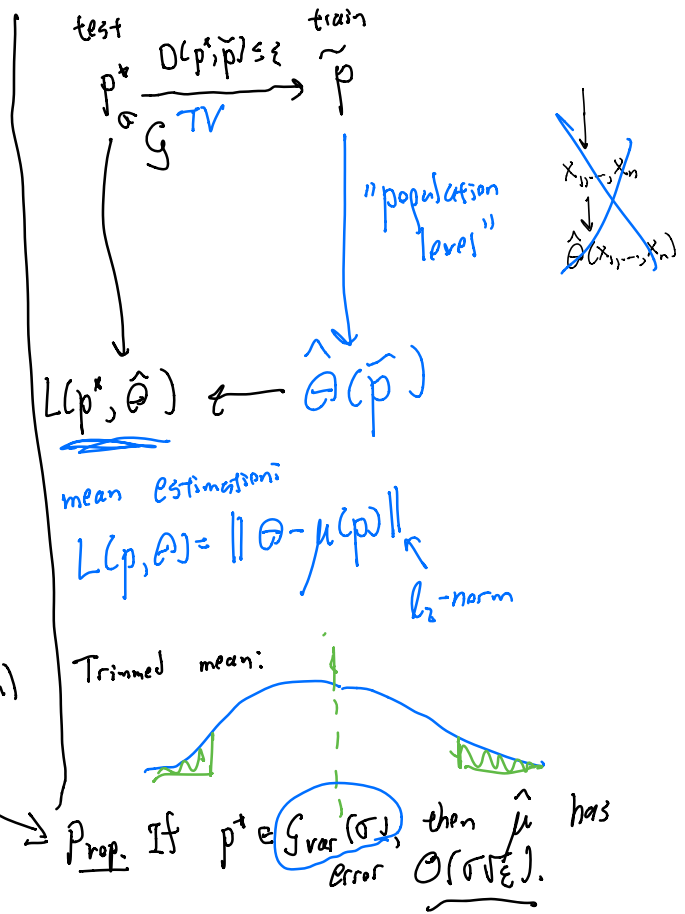 test train
p* D(p*, p̃) ≤ ε p̃
∈ G TV
"population
level"
x₁, ..., xₙ
θ̂(x₁, ..., xₙ)
L(p*, θ̂) ← θ̂(p̃)
mean estimation:
L(p, θ) = ||θ - μ(p)||
l₂-norm
Trimmed mean:
)
Prop. If p* ∈ G_var(σ), then μ̂ has
error O(σ√ε).